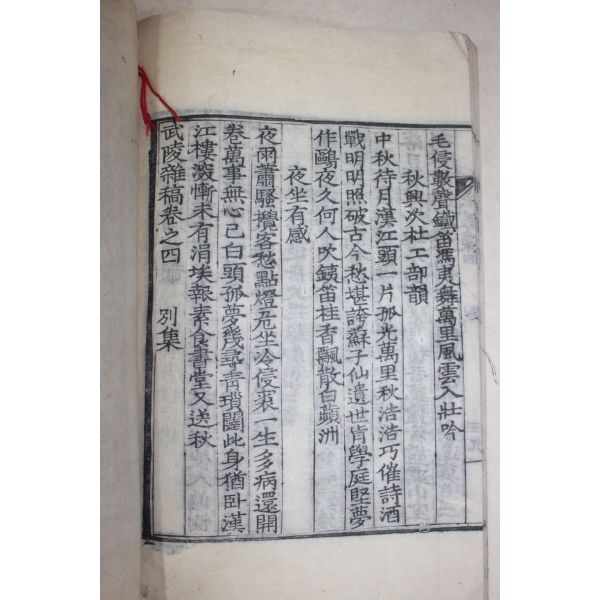 毛侵數聲鐵笛馮夷舞萬里風雲入壯吟
秋興次杜工部韻
中秋待月漢江頭一片孤光萬里秋浩浩巧催詩酒
戰明明照破古今愁堪誇蘇子仙遺世肯學庭堅夢
作鷗夜久何人吹鐵笛桂香飄散白蘋洲
夜坐有感
夜雨蕭騷攪客愁點燈危坐冷侵裘一生多病還開
卷萬事無心已白頭孤夢幾尋靑瑣闥此身猶卧漢
江樓深慚未有涓埃報素食書堂又送秋
武陵雜稿卷之四 別集